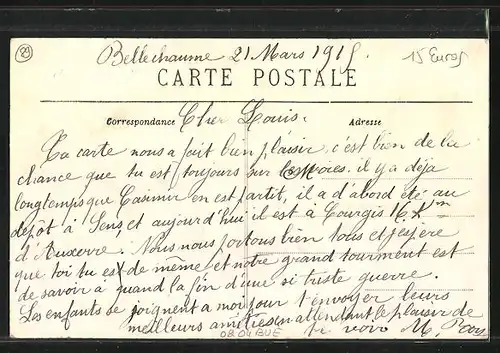 89
Bellechaume 21 Mars 1915.
15 Euros
CARTE POSTALE
Correspondance
Adresse
Cher Louis.
Ta carte nous a fait bien plaisir, c'est bien de la
chance que tu est toujours sur les voies. il y a déja
longtemps que Casimir en est partit, il a d'abord été au
dépôt à Sens, et aujourd'hui il est à Courgis
d'Auxerre. Nous nous portous bien tous et j'espère
que toi tu est de même et notre grand tourment est
de savoir à quand la fin d'une si triste guerre.
Les enfants se joignent a moi pour t'envoyer leurs
meilleurs amitiés en attendant le plaisir de
te revoir M.
0804BUE